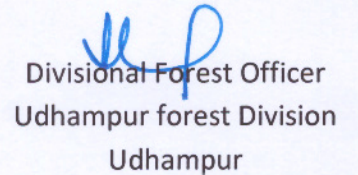 Divisional Forest Officer
Udhampur forest Division
Udhampur